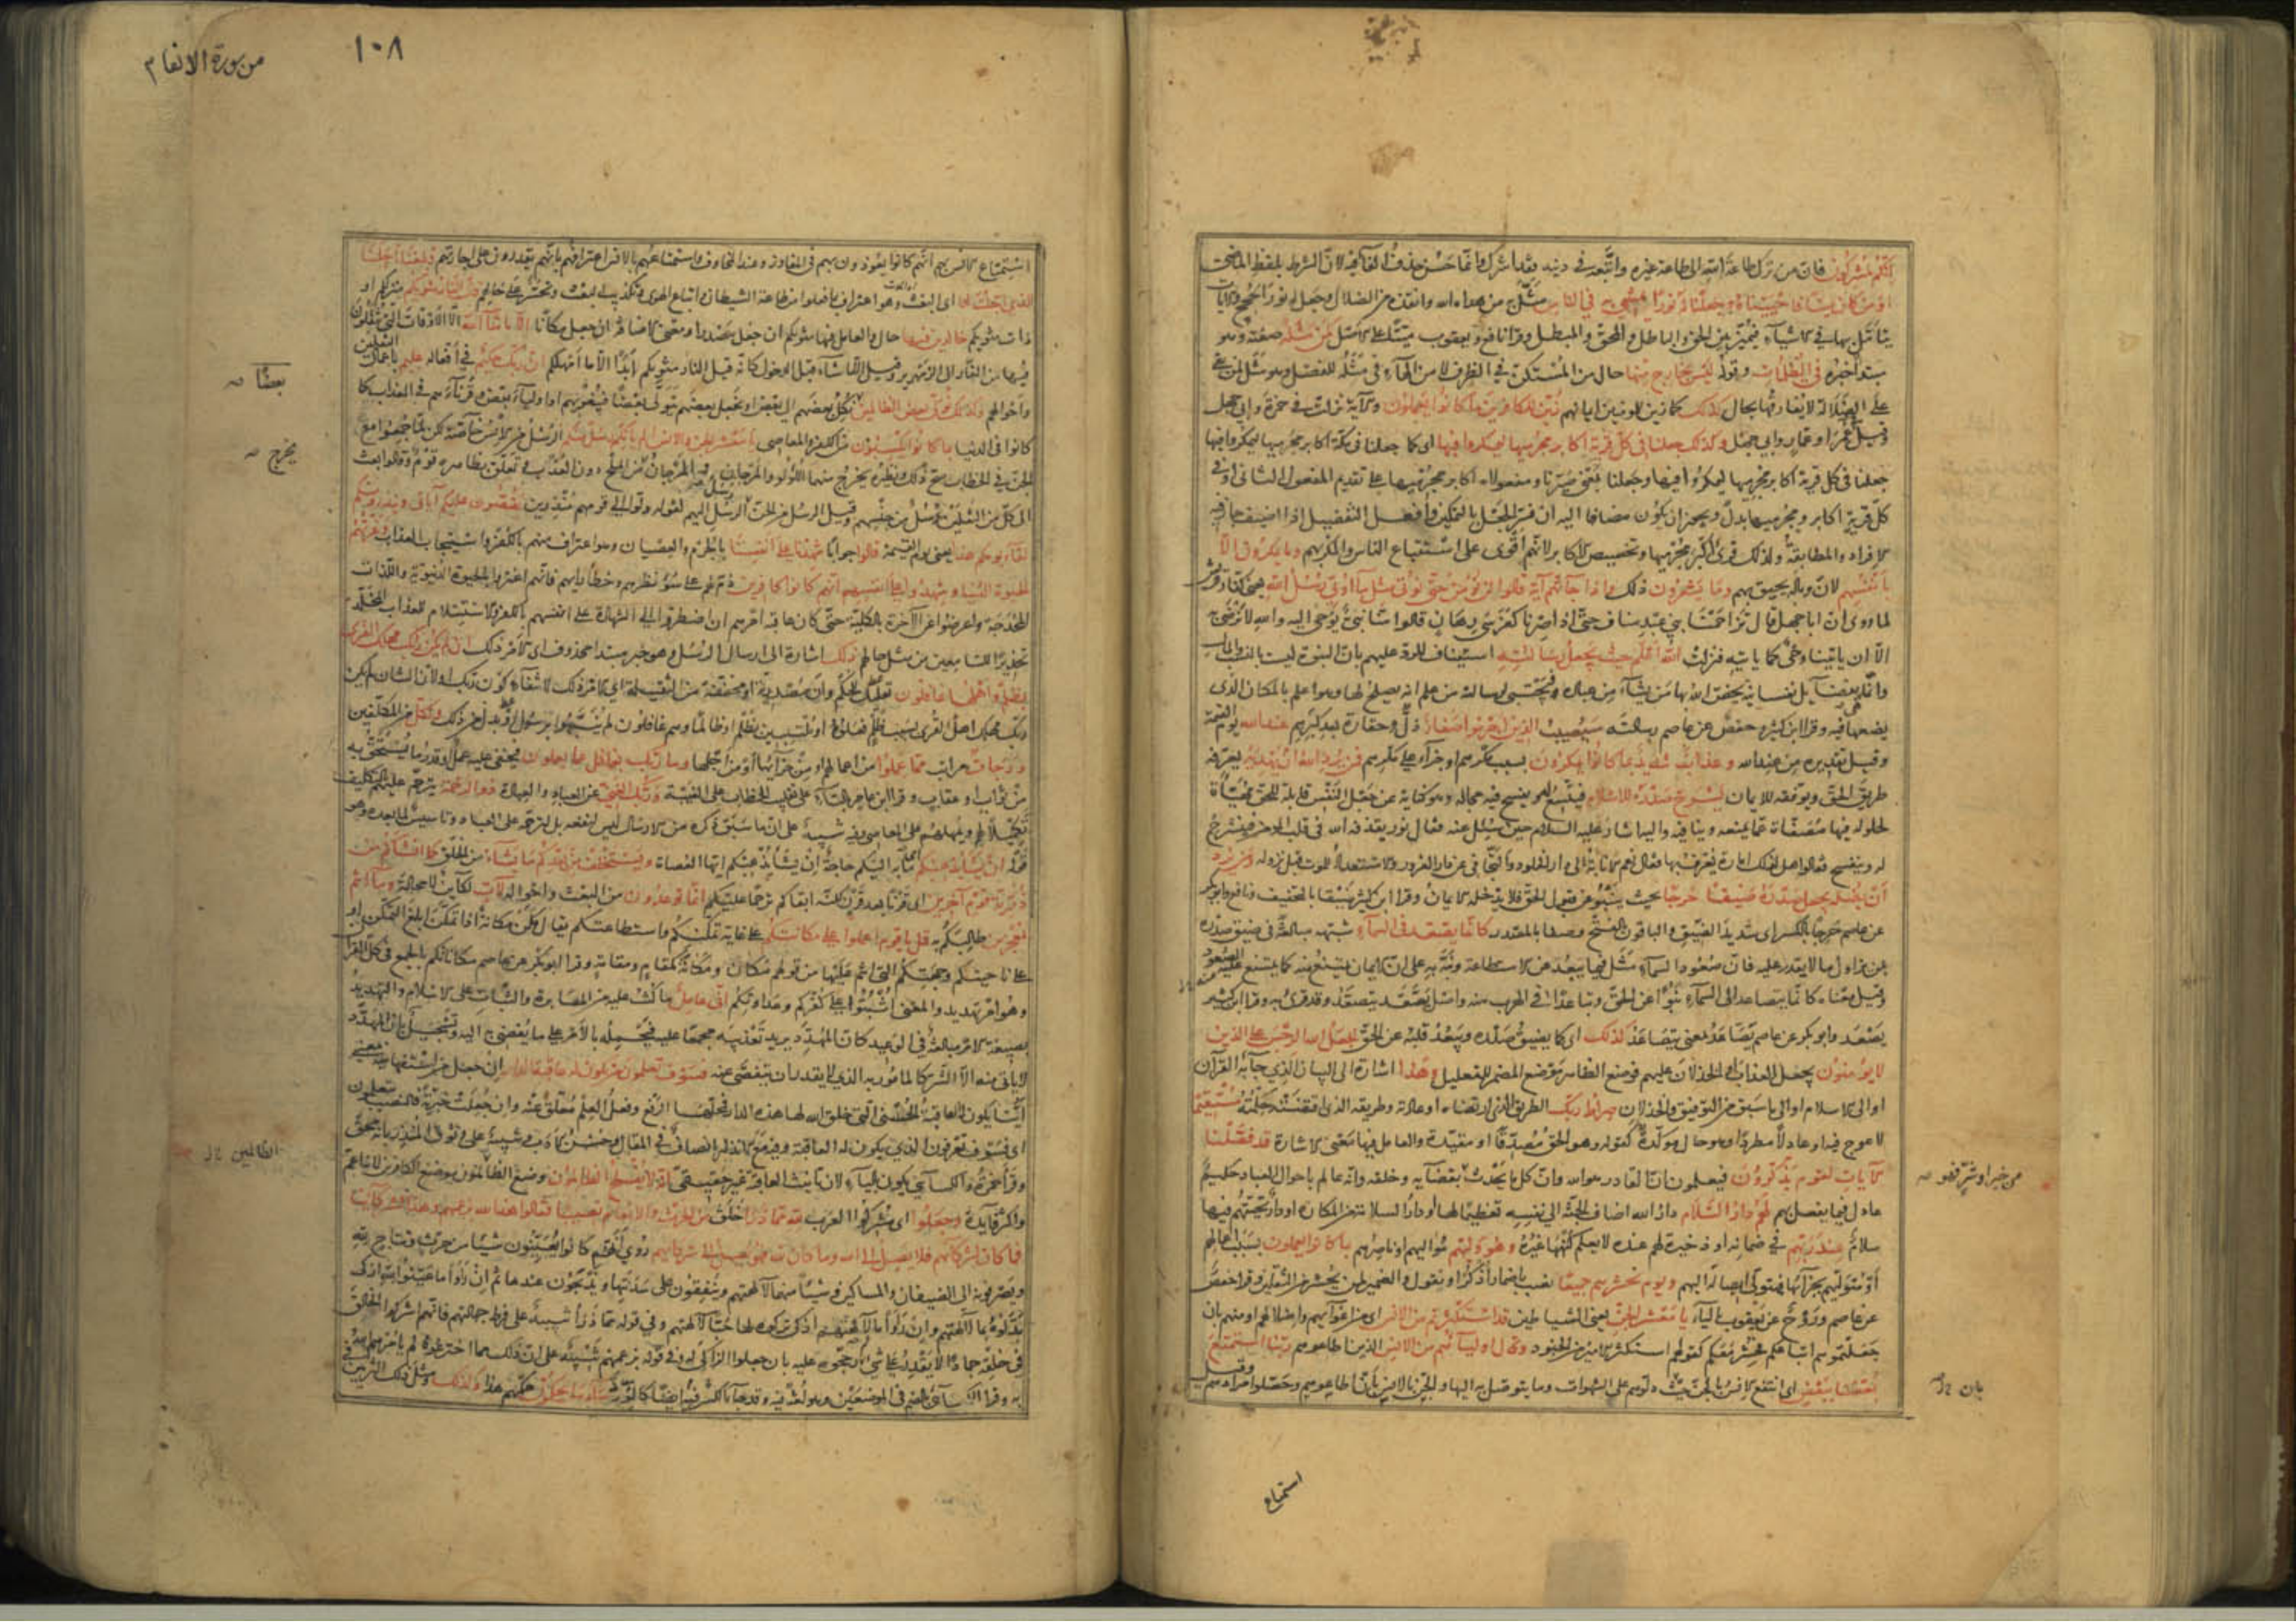 إنكم لمشركون فان من ترك طاعة الله الى طاعة غيره واتبعه في دينه فقد اشرك وانما حسن حذف الفاء فيه لان الشرط بلفظ الماضى
او من كان ميتا فاحييناه وجعلنا له نورا يمشي به في الناس مثل به من هداه الله وانقذه من الضلال وجعل له نور الحجج والآيات
يتأمل بها في الاشياء فيميز بين الحق والباطل والمحق والمبطل وقرأ نافع ويعقوب ميتا على الاصل كمن مثله صفته وهو
مبتدأ خبره في الظلمات وقوله ليس بخارج منها حال من المستكن في الظرف لا من الهاء في مثله للفصل وهو مثل لمن بقى
على الضلالة لا يفارقها بحال كذلك كما زين للمؤمنين ايمانهم زين للكافرين ما كانوا يعملون والآية نزلت في حمزة وابي جهل
وقيل في عمر او عمار وابي جهل وكذلك جعلنا في كل قرية اكابر مجرميها ليمكروا فيها اى كما جعلنا في مكة اكابر مجرميها ليمكروا فيها
جعلنا في كل قرية اكابر مجرميها ليمكروا فيها وجعلنا بمعنى صيرنا ومفعولاه اكابر مجرميها على تقديم المفعول الثانى او في
كل قرية اكابر ومجرميها بدل ويجوز ان يكون مضافا اليه ان فسر الجعل بالتمكين وافعل التفضيل اذا اضيف جاز فيه
الافراد والمطابقة ولذلك قرئ اكبر مجرميها وتخصيص الاكابر لانهم اقوى على استتباع الناس والمكر بهم وما يمكرون الا
بانفسهم لان وباله يحيق بهم وما يشعرون ذلك واذا جاءتهم آية قالوا لن نؤمن حتى نؤتى مثل ما اوتي رسل الله يعنى كفار قريش
لما روى ان ابا جهل قال تزاحمنا بني عبد مناف حتى اذا صرنا كفرسى رهان قالوا منا نبى يوحى اليه والله لا نرضى به
الا ان يأتينا وحى كما يأتيه فنزلت الله اعلم حيث يجعل رسالته استيناف للرد عليهم بان النبوة ليست بالنسب والمال
وانما هي بفضائل نفسانية يخص الله بها من يشاء من عباده فيجتبى لرسالته من علم انه يصلح لها وهو اعلم بالمكان الذى
يضعها فيه وقرأ ابن كثير وحفص عن عاصم رسالته سيصيب الذين اجرموا صغار ذل وحقارة بعد كبرهم عند الله يوم القيمة
وقيل تقديره من عند الله وعذاب شديد بما كانوا يمكرون بسبب مكرهم او جزاء على مكرهم فمن يرد الله ان يهديه يعرفه
طريق الحق ويوفقه للايمان يشرح صدره للاسلام فيتسع له ويفسح فيه مجاله وهو كناية عن جعل النفس قابلة للحق مهيأة
لحلوله فيها مصفاة عما يمنعه وينافيه واليه اشار عليه السلام حين سئل عنه فقال نور يقذفه الله في قلب المؤمن فينشرح
له وينفسح فقالوا هل لذلك امارة يعرف بها فقال نعم الانابة الى دار الخلود والتجافى عن دار الغرور والاستعداد للموت قبل نزوله ومن يرد
ان يضله يجعل صدره ضيقا حرجا بحيث ينبو عن قبول الحق فلا يدخله الايمان وقرأ ابن كثير ضيقا بالتخفيف ونافع وابو بكر
عن عاصم حرجا بالكسر اى شديد الضيق والباقون بالفتح وصفا بالمصدر كانما يصعد في السماء شبهه مبالغة في ضيق صدره
بمن يزاول ما لا يقدر عليه فان صعود السماء مثل فيما يبعد عن الاستطاعة ونبه به على ان الايمان يمتنع منه كما يمتنع عليه الصعود
وقيل معناه كانما يتصاعد الى السماء نبوا عن الحق وتباعدا في الهرب منه واصل يصعد يتصعد وقد قرئ به وقرأ ابن كثير
يصعد وابو بكر عن عاصم يصاعد بمعنى يتصاعد كذلك اى كما يضيق صدره ويبعد قلبه عن الحق يجعل الله الرجس على الذين
لا يؤمنون يجعل العذاب او الخذلان عليهم فوضع الظاهر موضع المضمر للتعليل وهذا اشارة الى البيان الذى جاء به القرآن
او الى الاسلام او الى ما سبق من التوفيق والخذلان صراط ربك الطريق الذى ارتضاه او عادته وطريقه الذى اقتضته حكمته مستقيما
لا عوج فيه او عادلا مطردا وهو حال مؤكدة كقوله وهو الحق مصدقا او مقيدة والعامل فيها معنى الاشارة قد فصلنا
الآيات لقوم يذكرون فيعلمون ان القادر هو الله وان كل ما يحدث بقضائه وخلقه وانه عالم باحوال العباد حكيم
عادل فيما يفعل بهم لهم دار السلام دار الله اضاف الجنة الى نفسه تعظيما لها او دار السلامة من المكاره او دار تحيتهم فيها
سلام عند ربهم في ضمانه او ذخيرة لهم عنده لا يعلم كنهها غيره وهو وليهم مواليهم او ناصرهم بما كانوا يعملون بسبب اعمالهم
او متوليهم بجزائها فيتولى ايصاله اليهم ويوم نحشرهم جميعا نصب باضمار اذكر او نقول والضمير لمن يحشر من الثقلين وقرأ حفص
عن عاصم وروح عن يعقوب بالياء يا معشر الجن يعنى الشياطين قد استكثرتم من الانس اى من اغوائهم واضلالهم او منهم بان
جعلتموهم اتباعكم فحشروا معكم كقولهم استكثر الامير من الجنود وقال اولياؤهم من الانس الذين اطاعوهم ربنا استمتع
بعضنا ببعض اى انتفع الانس بالجن بان دلوهم على الشهوات وما يتوصل به اليها والجن بالانس بان اطاعوهم وحصلوا مرادهم وقيل
من خير او شر فهو صح
بان صح
استمتاع
من سورة الانعام
١٠٨
استمتاع الانس بهم انهم كانوا يعوذون بهم في المفاوز وعند المخاوف واستمتاعهم بالانس اعترافهم بانهم يقدرون على اجارتهم وبلغنا اجلنا
الذى اجلت لنا اى البعث وهو اعتراف بما فعلوا من طاعة الشيطان واتباع الهوى وتكذيب البعث وتحسر على حالهم قال النار مثويكم منزلكم او
ذات مثويكم خالدين فيها حال والعامل فيها مثويكم ان جعل مصدرا ومعنى الاضافة ان جعل مكانا الا ما شاء الله الا الاوقات التى ينقلون
فيها من النار الى الزمهرير وقيل الا ما شاء قبل الدخول كانه قيل النار مثويكم ابدا الا ما امهلكم ان ربك حكيم في افعاله عليم باعمال الثقلين
واحوالهم وكذلك نولى بعض الظالمين بعضا نكل بعضهم الى بعض او نجعل بعضهم يتولى بعضا فيغويهم او اولياء بعض وقرناءهم في العذاب كما
كانوا في الدنيا بما كانوا يكسبون من الكفر والمعاصى يا معشر الجن والانس الم يأتكم رسل منكم الرسل من الانس خاصة لكن لما جمعوا مع
الجن في الخطاب صح ذلك ونظيره يخرج منهما اللؤلؤ والمرجان والمرجان من الملح دون العذب وتعلق بظاهره قوم وقالوا بعث
الى كل من الثقلين رسل من جنسهم وقيل الرسل من الجن رسل الرسل اليهم لقوله ولوا الى قومهم منذرين يقصون عليكم آياتى وينذرونكم
لقاء يومكم هذا يعنى يوم القيمة قالوا جوابا شهدنا على انفسنا بالجرم والعصيان وهو اعتراف منهم بالكفر واستيجاب العذاب وغرتهم
الحيوة الدنيا وشهدوا على انفسهم انهم كانوا كافرين ذم لهم على سوء نظرهم وخطأ رأيهم فانهم اغتروا بالحيوة الدنيوية واللذات
المخدجة واعرضوا عن الآخرة بالكلية حتى كان عاقبة امرهم ان اضطروا الى الشهادة على انفسهم بالكفر والاستسلام للعذاب المخلد
تحذيرا للسامعين من مثل حالهم ذلك اشارة الى ارسال الرسل وهو خبر مبتدأ محذوف اى الامر ذلك ان لم يكن ربك مهلك القرى
بظلم واهلها غافلون تعليل للحكم وان مصدرية او مخففة من الثقيلة اى الامر ذلك لانتفاء كون ربك او لان الشان لم يكن
ربك مهلك اهل القرى بسبب ظلم فعلوه او ملتبسين بظلم او ظالما وهم غافلون لم ينبهوا برسول او بدل من ذلك ولكل من المكلفين
درجات مراتب مما عملوا من اعمالهم او من جزائها او من اجلها وما ربك بغافل عما يعملون فيخفى عليه عمل او قدر ما يستحق به
من ثواب او عقاب وقرأ ابن عامر بالتاء على تغليب الخطاب على الغيبة وربك الغنى عن العباد والعبادة ذو الرحمة يترحم عليهم بالتكليف
تكميلا لهم ويمهلهم على المعاصى وفيه تنبيه على ان ما سبق ذكره من الارسال ليس لنفعه بل لترحمه على العباد وتاسيس لما بعده وهو
قوله ان يشأ يذهبكم اى ما به اليكم حاجة ان يشأ يذهبكم ايها العصاة ويستخلف من بعدكم ما يشاء من الخلق كما انشأكم من
ذرية قوم آخرين اى قرنا بعد قرن لكنه ابقاكم ترحما عليكم انما توعدون من البعث واحواله لآت لكاين لا محالة وما انتم
بمعجزين طالبكم به قل يا قوم اعملوا على مكانتكم على غاية تمكنكم واستطاعتكم يقال مكن مكانة اذا تمكن ابلغ التمكن او
على ناحيتكم وجهتكم التى انتم عليها من قولهم مكان ومكانة كمقام ومقامة وقرأ ابو بكر عن عاصم مكاناتكم بالجمع في كل القرآن
وهو امر تهديد والمعنى اثبتوا على كفركم وعداوتكم انى عامل ما كنت عليه من المصابرة والثبات على الاسلام والتهديد
بصيغة الامر مبالغة في الوعيد كان المهدد يريد تعذيبه مجمعا عليه فيحمله بالامر على ما يفضى به اليه وتسجيل بان المهدد
لا ياتى منه الا الشر كالمامور به الذى لا يقدر ان يتفصى عنه فسوف تعلمون من تكون له عاقبة الدار ان جعل من استفهامية بمعنى
اينا يكون له العاقبة الحسنى التى خلق الله لها هذه الدار فمحلها الرفع وفعل العلم معلق عنه وان جعلت خبرية فالنصب بتعلمون
اى فسوف تعرفون الذى يكون له العاقبة وفيه مع الانذار انصاف في المقال وحسن الادب وتنبيه على وثوق المنذر بانه محق
وقرأ حمزة والكسائى يكون بالياء لان تانيث العاقبة غير حقيقى انه لا يفلح الظالمون وضع الظالمون موضع الكافرين لانه اعم
واكثر فايدة وجعلوا اى مشركوا العرب لله مما ذرأ خلق من الحرث والانعام نصيبا فقالوا هذا لله بزعمهم وهذا لشركائنا
فما كان لشركائهم فلا يصل الى الله وما كان لله فهو يصل الى شركائهم روى انهم كانوا يعينون شيئا من حرث ونتاج لله
ويصرفونه الى الضيفان والمساكين وشيئا منهما لآلهتهم وينفقون على سدنتها ويذبحون عندها ثم ان رأوا ما عينوا لله ازكى
بدلوه بما لآلهتهم وان رأوا ما لآلهتهم ازكى تركوه لها حبا لآلهتهم وفي قوله مما ذرأ تنبيه على فرط جهالتهم فانهم اشركوا الخالق
في خلقه جمادا لا يقدر على شئ ثم رجحوه عليه بان جعلوا الزاكى له وفي قوله بزعمهم تنبيه على ان ذلك مما اخترعوه لم يامرهم الله
به وقرأ الكسائى بالضم في الموضعين وهو لغة فيه وقد جاء بالكسر فيه ايضا كالود ساء ما يحكمون حكمهم هذا وكذلك ومثل ذلك التزيين
بعضا صح
يخرج صح
الظالمين صح